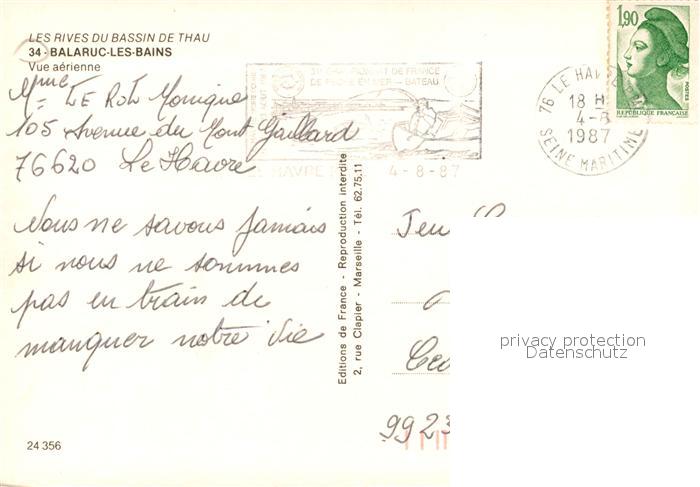 LES RIVES DU BASSIN DE THAU
34 - BALARUC-LES-BAINS
Vue aérienne
Mme LE ROL Monique
105 Avenue du Mont Gaillard
76620 Le Havre
Nous ne savons jamais
si nous ne sommes
pas en train de
manquer notre vie
24 356
Editions de France - Reproduction interdite
2, rue Clapier - Marseille - Tél. 62.75.11
DE FRANCE
BATEAU
LE HAVRE
4-8-87
76 LE HAVRE
18 H
4-8
1987
SEINE MARITIME
1,90
POSTES
REPUBLIQUE FRANÇAISE
privacy protection
Datenschutz
9923